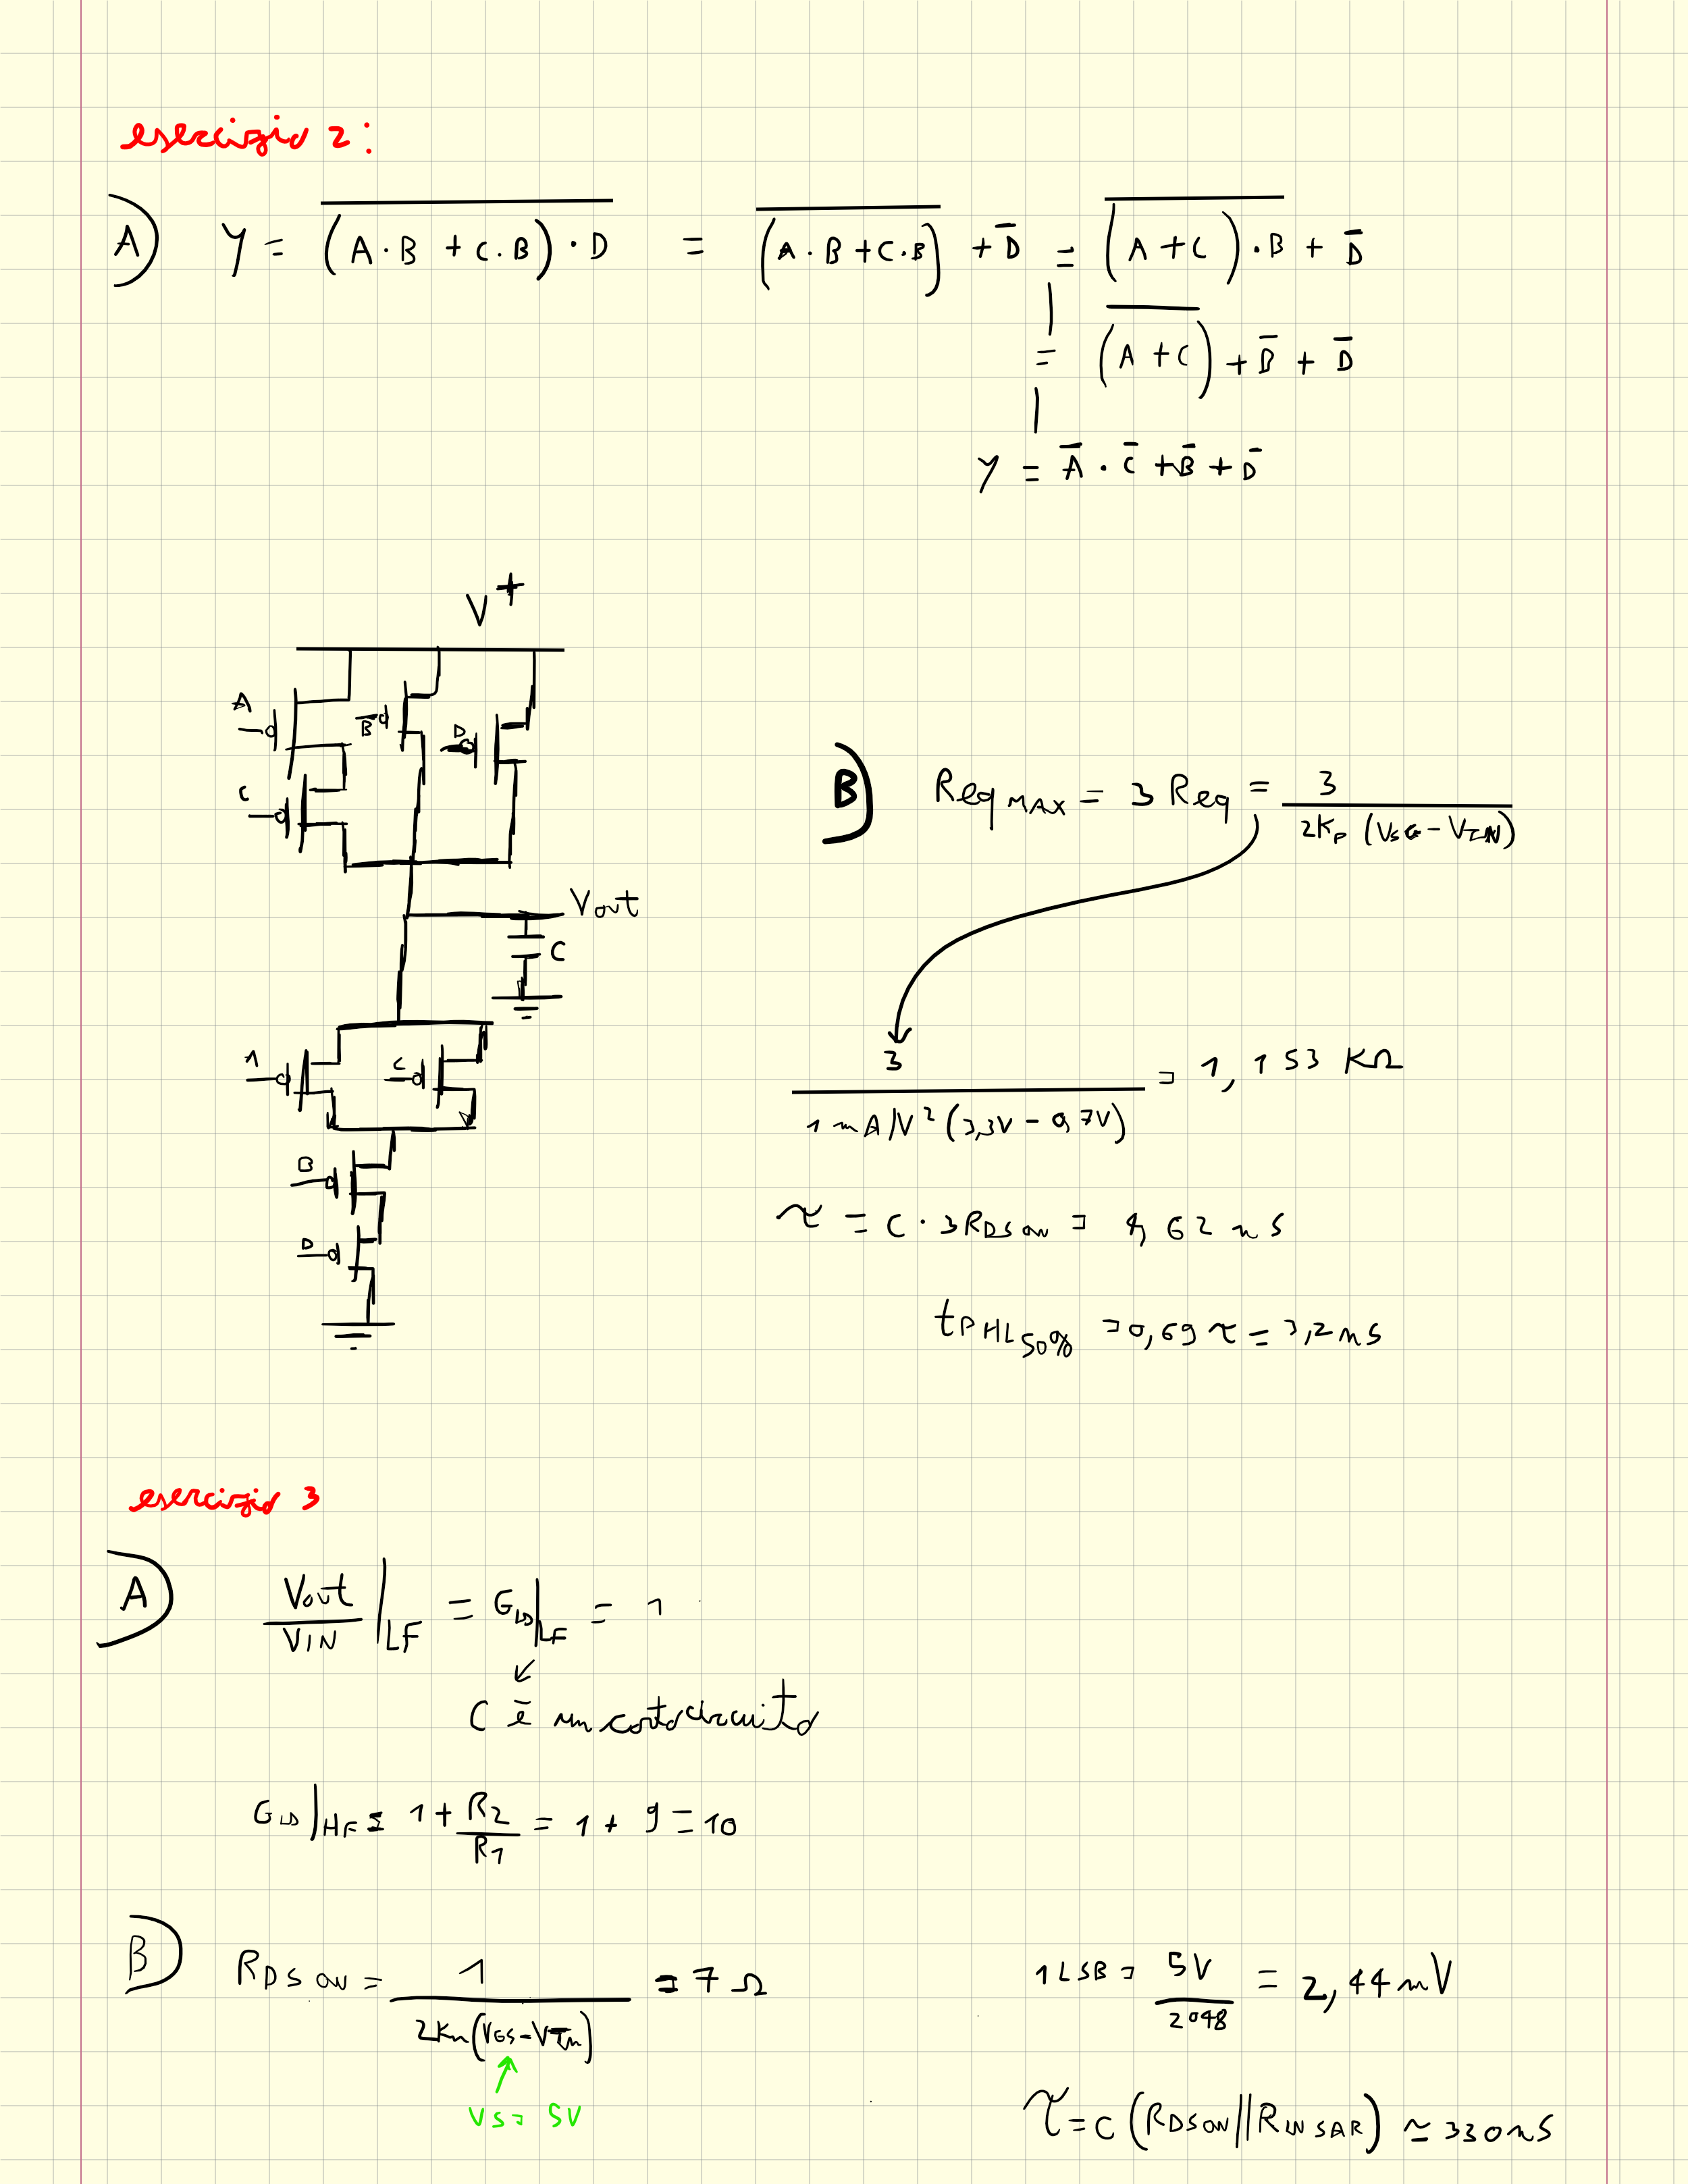 esercizio 2:
A) Y = \overline{(A·B + C·B)·D} = \overline{(A·B + C·B)} + \overline{D} = \overline{(A + C)·B} + \overline{D}
= \overline{(A + C)} + \overline{B} + \overline{D}
Y = \overline{A}·\overline{C} + \overline{B} + \overline{D}
V+
A
B
D
C
B) Req MAX = 3 Req = 3 / 2Kp (VSG - VTN)
Vout
C
A
C
3 / 1 mA/V² (3,3V - 0,7V) = 1,153 KΩ
B
D
τ = C · 3RDSon = 4,62 ns
tPHL 50% = 0,69 τ = 3,2 ns
esercizio 3
A) Vout / VIN |LF = GID|LF = 1
C è un cortocircuito
GID|HF = 1 + R2 / R1 = 1 + 9 = 10
B) RDSon = 1 / 2Kn(VGS - VTn) = 7 Ω
1 LSB = 5V / 2048 = 2,44 mV
VS = 5V
τ = C (RDSon || RIN SAR) ≃ 330 nS